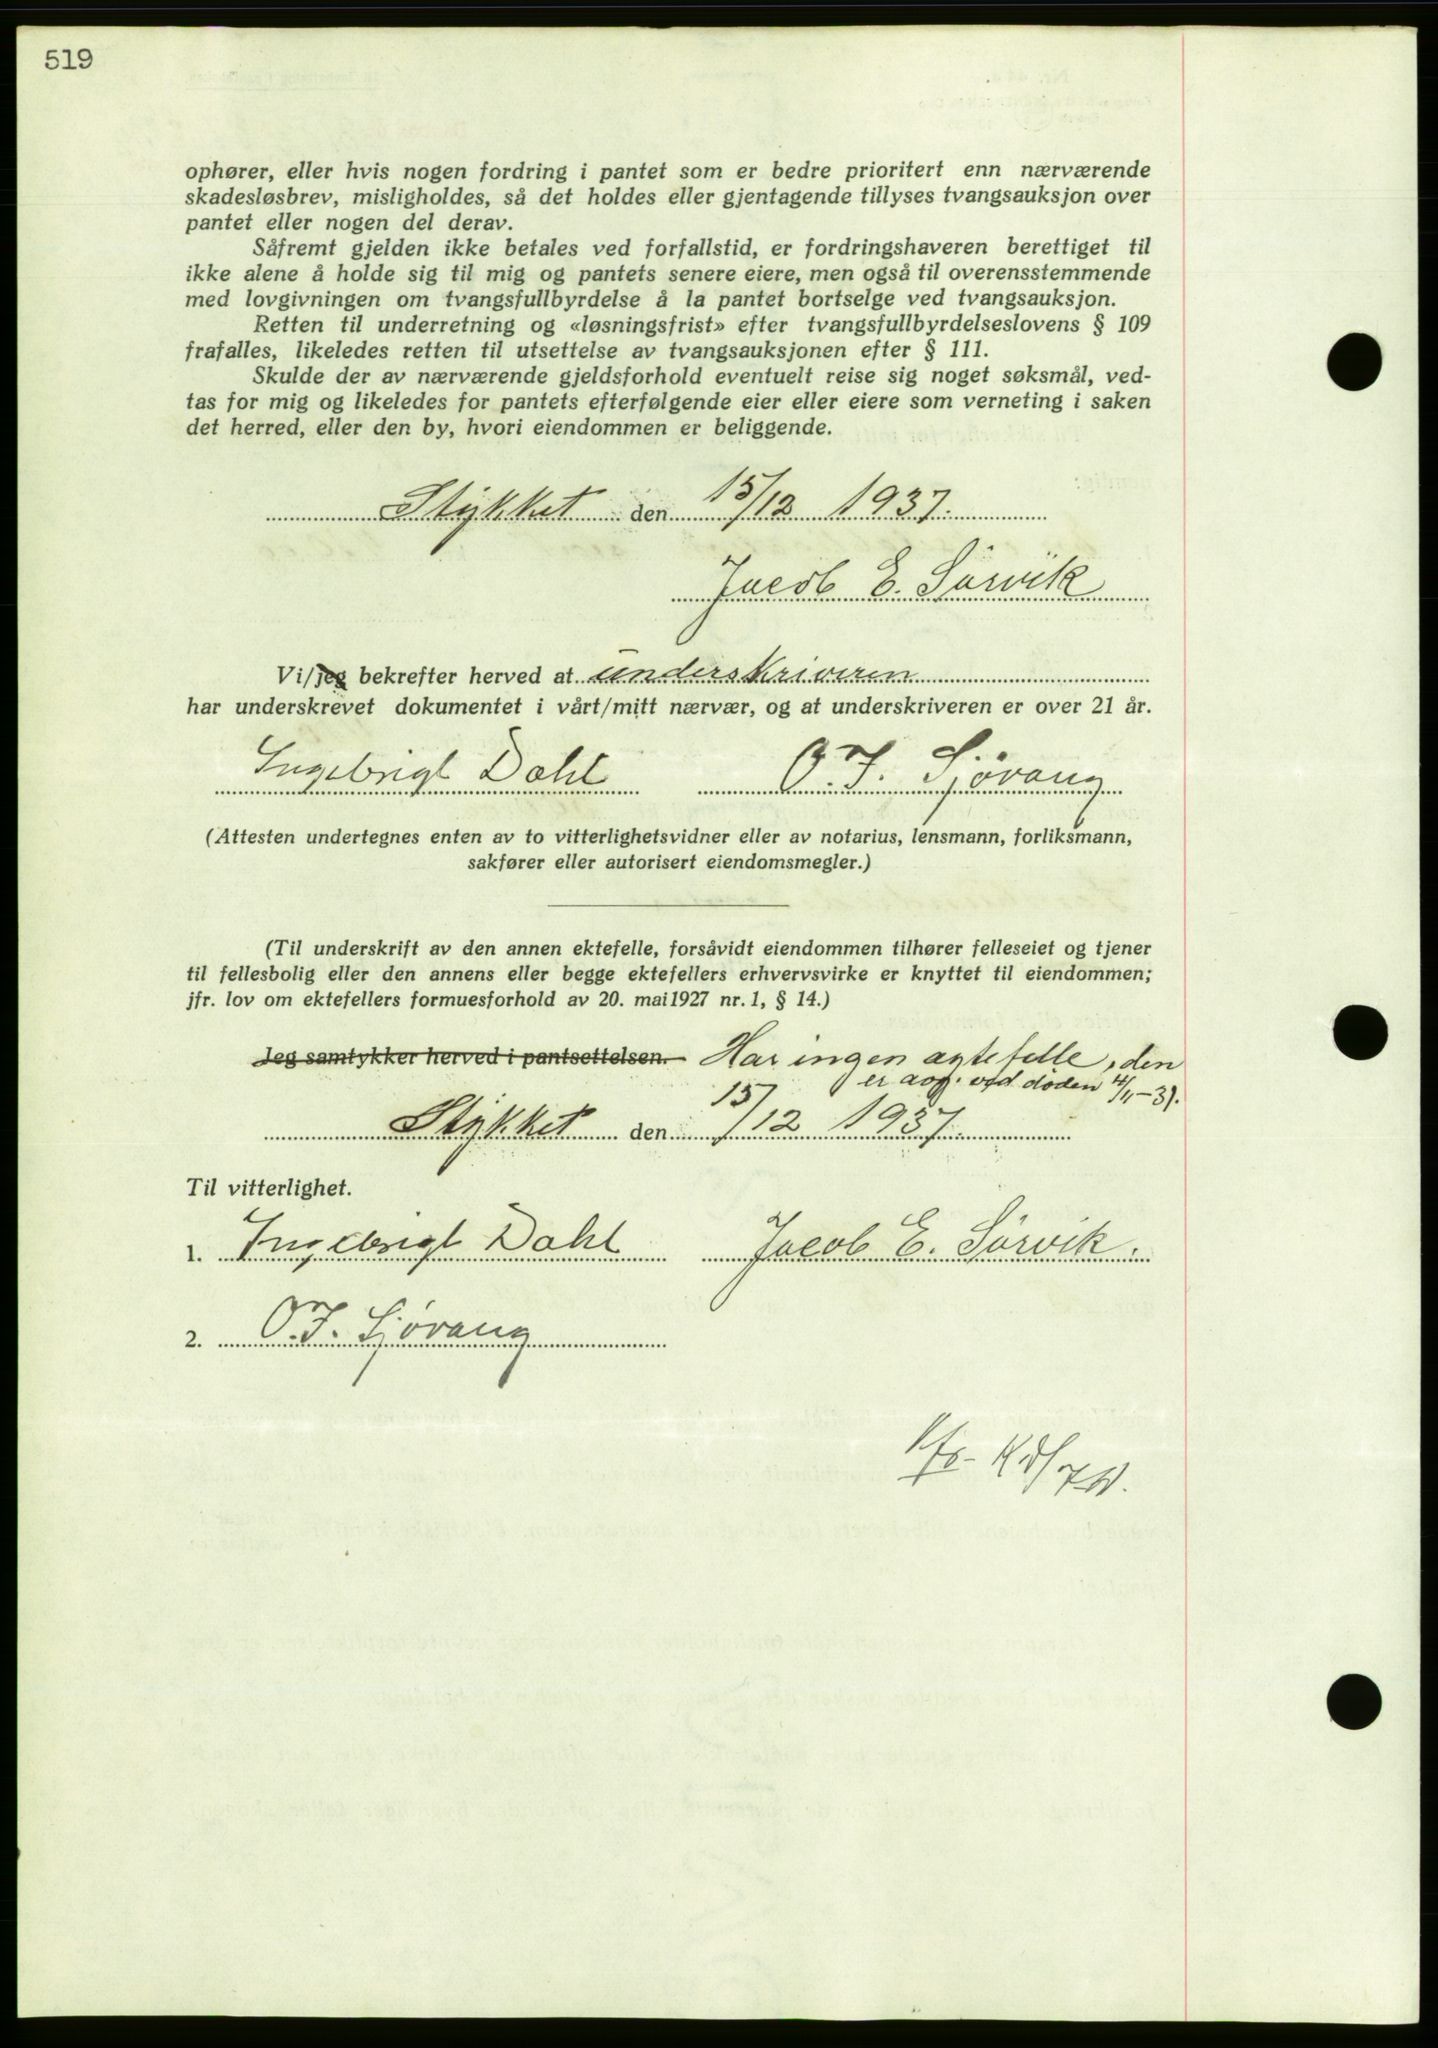 519
ophører, eller hvis nogen fordring i pantet som er bedre prioritert enn nærværende
skadesløsbrev, misligholdes, så det holdes eller gjentagende tillyses tvangsauksjon over
pantet eller nogen del derav.
Såfremt gjelden ikke betales ved forfallstid, er fordringshaveren berettiget til
ikke alene å holde sig til mig og pantets senere eiere, men også til overensstemmende
med lovgivningen om tvangsfullbyrdelse å la pantet bortselge ved tvangsauksjon.
Retten til underretning og «løsningsfrist» efter tvangsfullbyrdelseslovens § 109
frafalles, likeledes retten til utsettelse av tvangsauksjonen efter § 111.
Skulde der av nærværende gjeldsforhold eventuelt reise sig noget søksmål, ved-
tas for mig og likeledes for pantets efterfølgende eier eller eiere som verneting i saken
det herred, eller den by, hvori eiendommen er beliggende.
Stykket den 15/12 1937.
Jacob E. Sørvik
Vi/jeg bekrefter herved at underskriveren
har underskrevet dokumentet i vårt/mitt nærvær, og at underskriveren er over 21 år.
Ingebrigt Dahl O. J. Sjøvang
(Attesten undertegnes enten av to vitterlighetsvidner eller av notarius, lensmann, forliksmann,
sakfører eller autorisert eiendomsmegler.)
(Til underskrift av den annen ektefelle, forsåvidt eiendommen tilhører felleseiet og tjener
til fellesbolig eller den annens eller begge ektefellers erhvervsvirke er knyttet til eiendommen;
jfr. lov om ektefellers formuesforhold av 20. mai 1927 nr. 1, § 14.)
Jeg samtykker herved i pantsettelsen. Har ingen agtefelle, den
er avg. ved døden 4/11-31.
Stykket den 15/12 1937.
Til vitterlighet.
1. Ingebrigt Dahl Jacob E. Sørvik.
2. O. J. Sjøvang